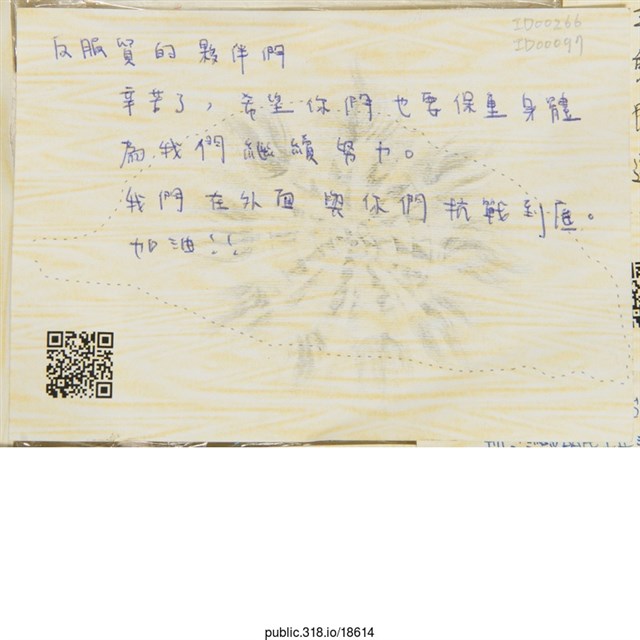 ID00266
ID00097
反服貿的夥伴們
辛苦了，希望你們也要保重身體
為我們繼續努力。
我們在外面與你們抗戰到底。
加油!!
public.318.io/18614